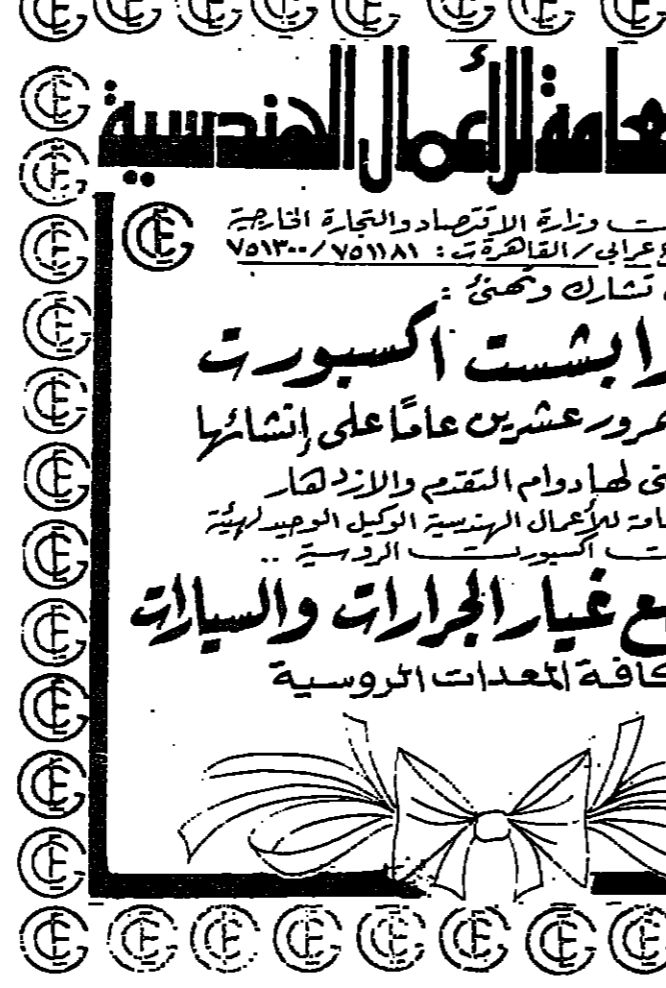 للأعمال الهندسية
وزارة الاقتصاد والتجارة الخارجية
عرابى / القاهرة ت : ٧٥١١٨١ / ٧٥١٣٠٠
تشارك وتهنئ :
اكسبورت
عشرين عامًا على إنشائها
لها دوام التقدم والازدهار
للأعمال الهندسية الوكيل الوحيد لهيئة
اكسبورت الروسية ..
غيار الجرارات والسيارات
كافة المعدات الروسية